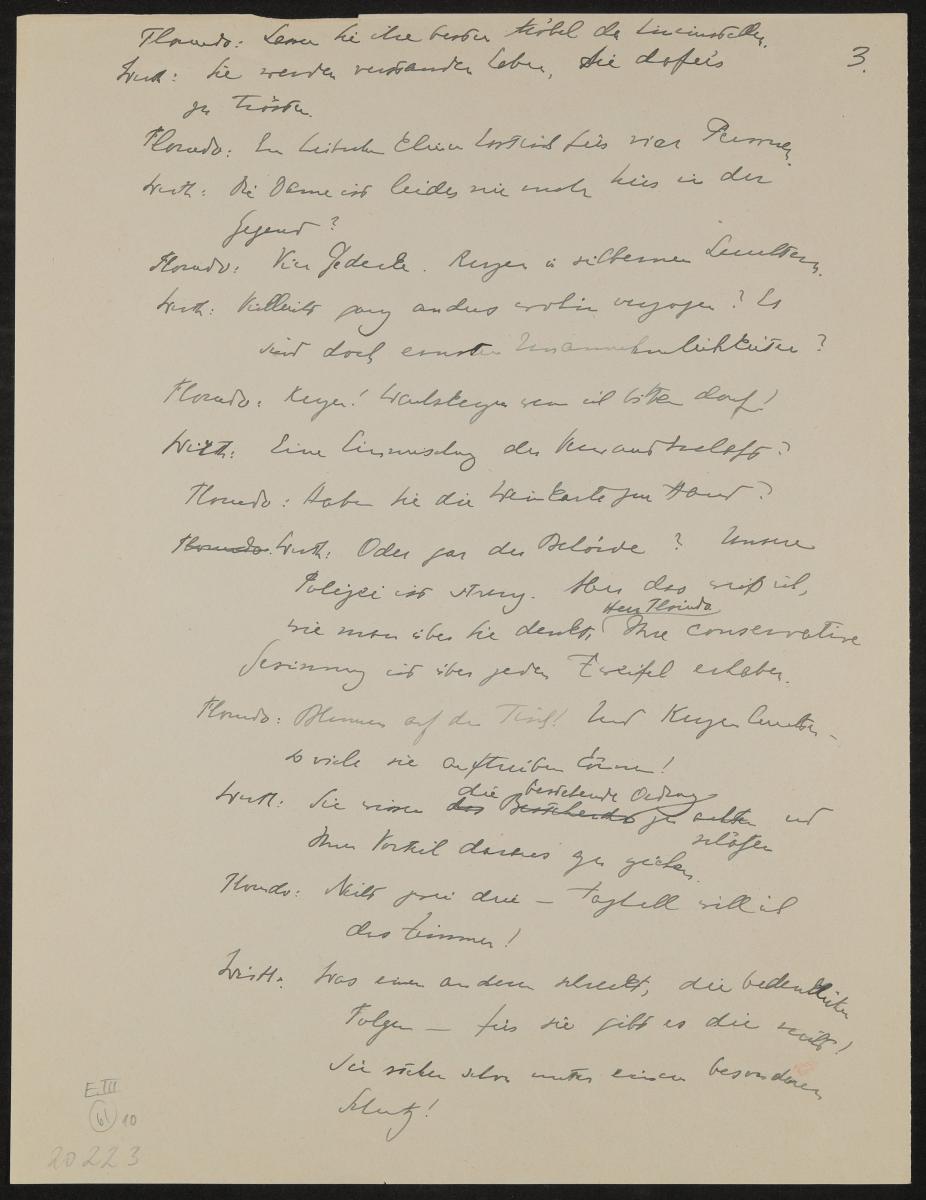 3.
Florindo: Lassen Sie ihre besten Möbel da hineinstellen.
Wirth: Sie werden verstanden haben, Sie dafür
zu trösten.
Florindo: Ein hübsches kleines für vier Personen.
Wirth: Die Dame ist leider nie mehr hier in der
Gegend?
Florindo: Vier Gedecke. Kerzen in silbernen Leuchtern.
Wirth: Vielleicht ganz anders wohin verzogen? Es
sind doch ernsten Unannehmlichkeiten?
Florindo: Kerzen! Wachskerzen wenn ich bitten darf!
Wirth: Eine Einmischung der Verwandtschaft?
Florindo: Haben Sie die Weinkarte zur Hand?
Florindo. Wirth: Oder gar der Behörde? Unsere
Polizei ist streng. Aber das weiß ich,
Herr Florindo
wie man über Sie denkt, Ihre conservative
Gesinnung ist über jeden Zweifel erhaben.
Florindo: Blumen auf den Tisch! Und Kerzenleuchter –
so viele sie auftreiben können!
die bestehende Ordnung
Wirth: Sie wissen das Bestehende zu achten und
schätzen
Ihren Vorteil daraus zu ziehen.
Florindo: Nicht zwei drei – taghell will ich
das Zimmer!
Wirth: Was einen andern schreckt, die bedenklichen
Folgen – für sie gibt es die nicht!
Sie stehen schon unter einem besonderen
Schutz!
E.III
61 10
20223